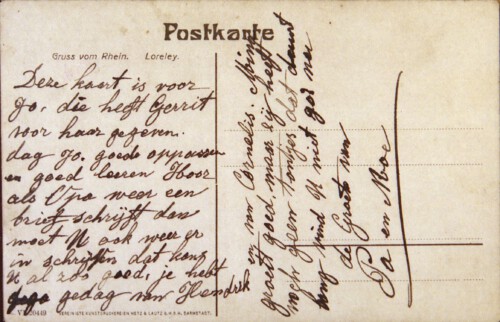 Postkarte
Gruss vom Rhein. Loreley.
Deze kaart is voor
Jo, die heeft Gerrit
voor haar gegeven.
dag Jo. goede oppassen
en goed leeren Hoor
als Opa weer een
brief schrijft dan
moet U ook weer er
in schrijven dat kan
U al zoo goed, je hebt
gedag van Hendrik
en nu Cornelis. Mina
groeit goed, maar zij heeft
nog geen tandjes dat duurt
nog vind U niet
de Groete van
Pa en Moe
VEREINIGTE KUNSTDRUCKEREIEN METZ & LAUTZ G.M.B.H. DARMSTADT.